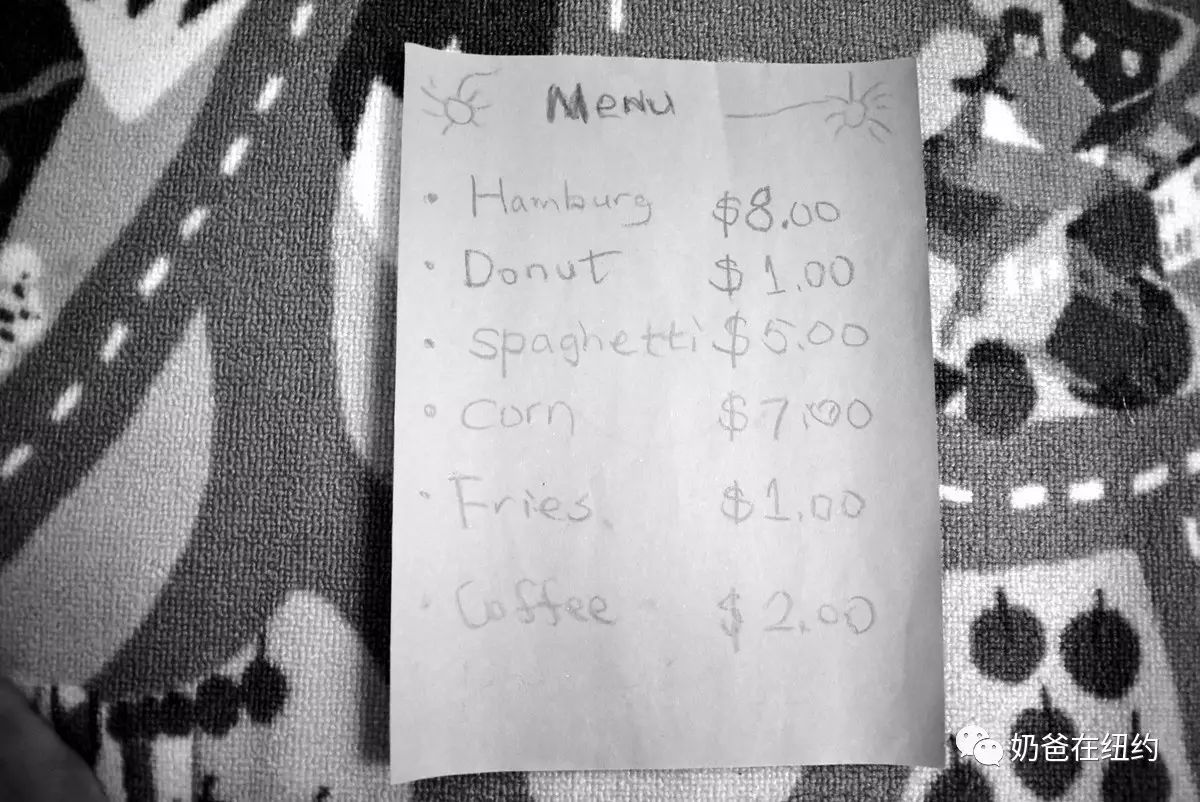 Menu
• Hamburg $8.00
• Donut $1.00
• Spaghetti $5.00
• Corn $7.00
• Fries. $1.00
• Coffee $2.00
奶爸在纽约